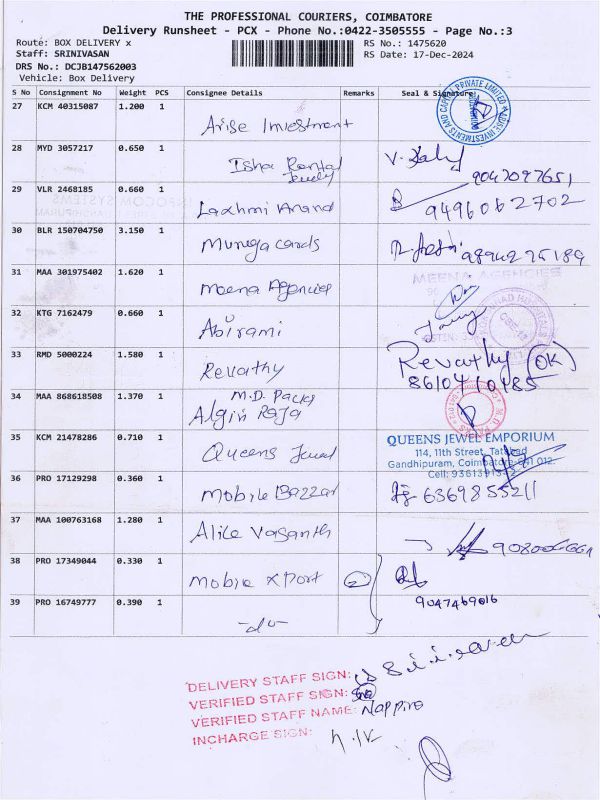 THE PROFESSIONAL COURIERS, COIMBATORE
Delivery Runsheet - PCX - Phone No.:0422-3505555 - Page No.:3
Route: BOX DELIVERY x
RS No.: 1475620
Staff: SRINIVASAN
RS Date: 17-Dec-2024
DRS No.: DCJB147562003
Vehicle: Box Delivery
S No Consignment No Weight PCS Consignee Details Remarks Seal & Signature
27 KCM 40315087 1.200 1 Arise Investment
28 MYD 3057217 0.650 1 Isha Rental
9047097651
29 VLR 2468185 0.660 1 Laxhmi Anand 9496062702
30 BLR 150704750 3.150 1 Muruga cards
31 MAA 301975402 1.620 1 Meena Agencies
MEENA AGENCIES
32 KTG 7162479 0.660 1 Abirami
33 RMD 5000224 1.580 1 Revathy Revathy OK
8610410485
34 MAA 868618508 1.370 1 M.D. Packs
Algin Raja
35 KCM 21478286 0.710 1 Queens Jewel
QUEENS JEWEL EMPORIUM
114, 11th Street, Tatabad
Gandhipuram, Coimbatore-641 012.
36 PRO 17129298 0.360 1 Mobile Bazzar 6369855211
37 MAA 100763168 1.280 1 Alice Vasanth
38 PRO 17349044 0.330 1 Mobile xport 2
39 PRO 16749777 0.390 1 -do- 9047469016
DELIVERY STAFF SIGN:
VERIFIED STAFF SIGN:
VERIFIED STAFF NAME:
INCHARGE SIGN: